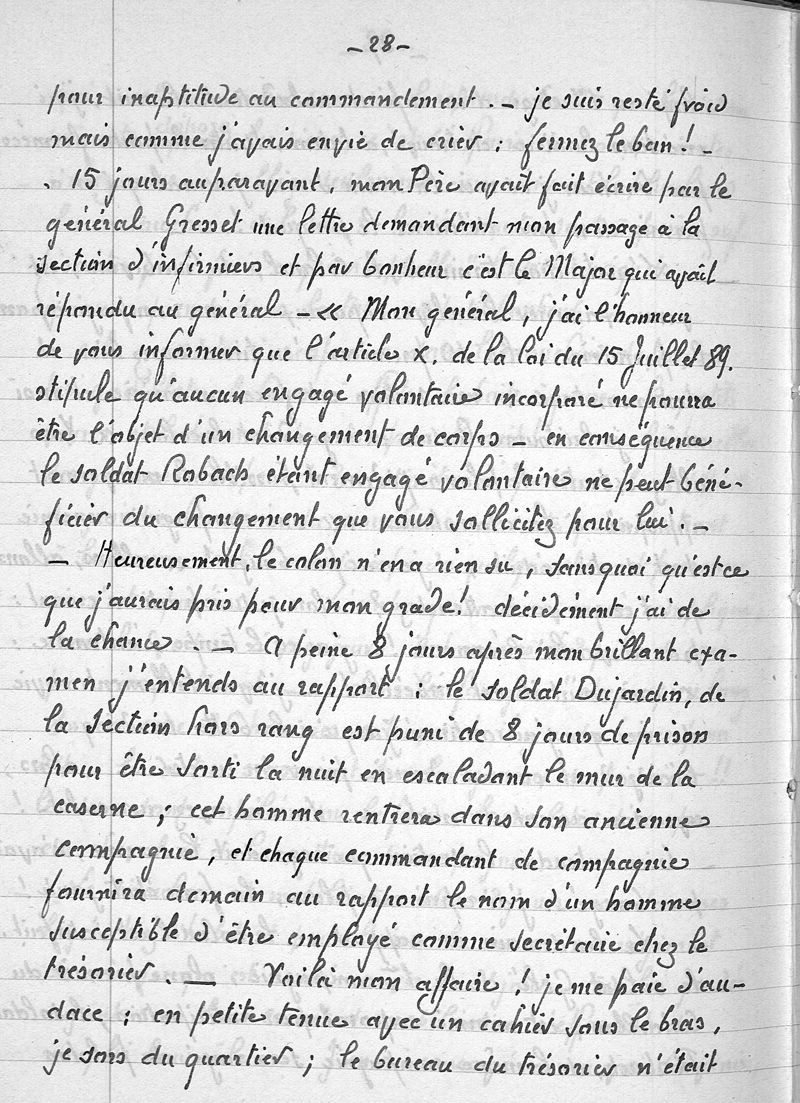 -28-
pour inaptitude au commandement. - je suis resté froid
mais comme j'avais envie de crier : fermez le ban ! -
. 15 jours auparavant, mon Père avait fait écrire par le
général Gresset une lettre demandant mon passage à la
section d'infirmiers et par bonheur c'est le Major qui avait
répondu au général - « Mon général, j'ai l'honneur
de vous informer que l'article X. de la loi du 15 Juillet 89.
stipule qu'aucun engagé volontaire incorporé ne pourra
être l'objet d'un changement de corps - en conséquence
le soldat Robach étant engagé volontaire ne peut béné-
ficier du changement que vous sollicitez pour lui. -
- Heureusement, le colon n'en a rien su, sans quoi qu'est ce
que j'aurais pris pour mon grade ! décidément j'ai de
la chance . - A peine 8 jours après mon brillant exa-
men j'entends au rapport : le soldat Dujardin, de
la section hors rang est puni de 8 jours de prison
pour être sorti la nuit en escaladant le mur de la
caserne ; cet homme rentrera dans son ancienne
compagnie, et chaque commandant de compagnie
fournira demain au rapport le nom d'un homme
susceptible d'être employé comme secrétaire chez le
trésorier . - Voilà mon affaire ! je me paie d'au-
dace : en petite tenue avec un cahier sous le bras,
je sors du quartier ; le bureau du trésorier n'était